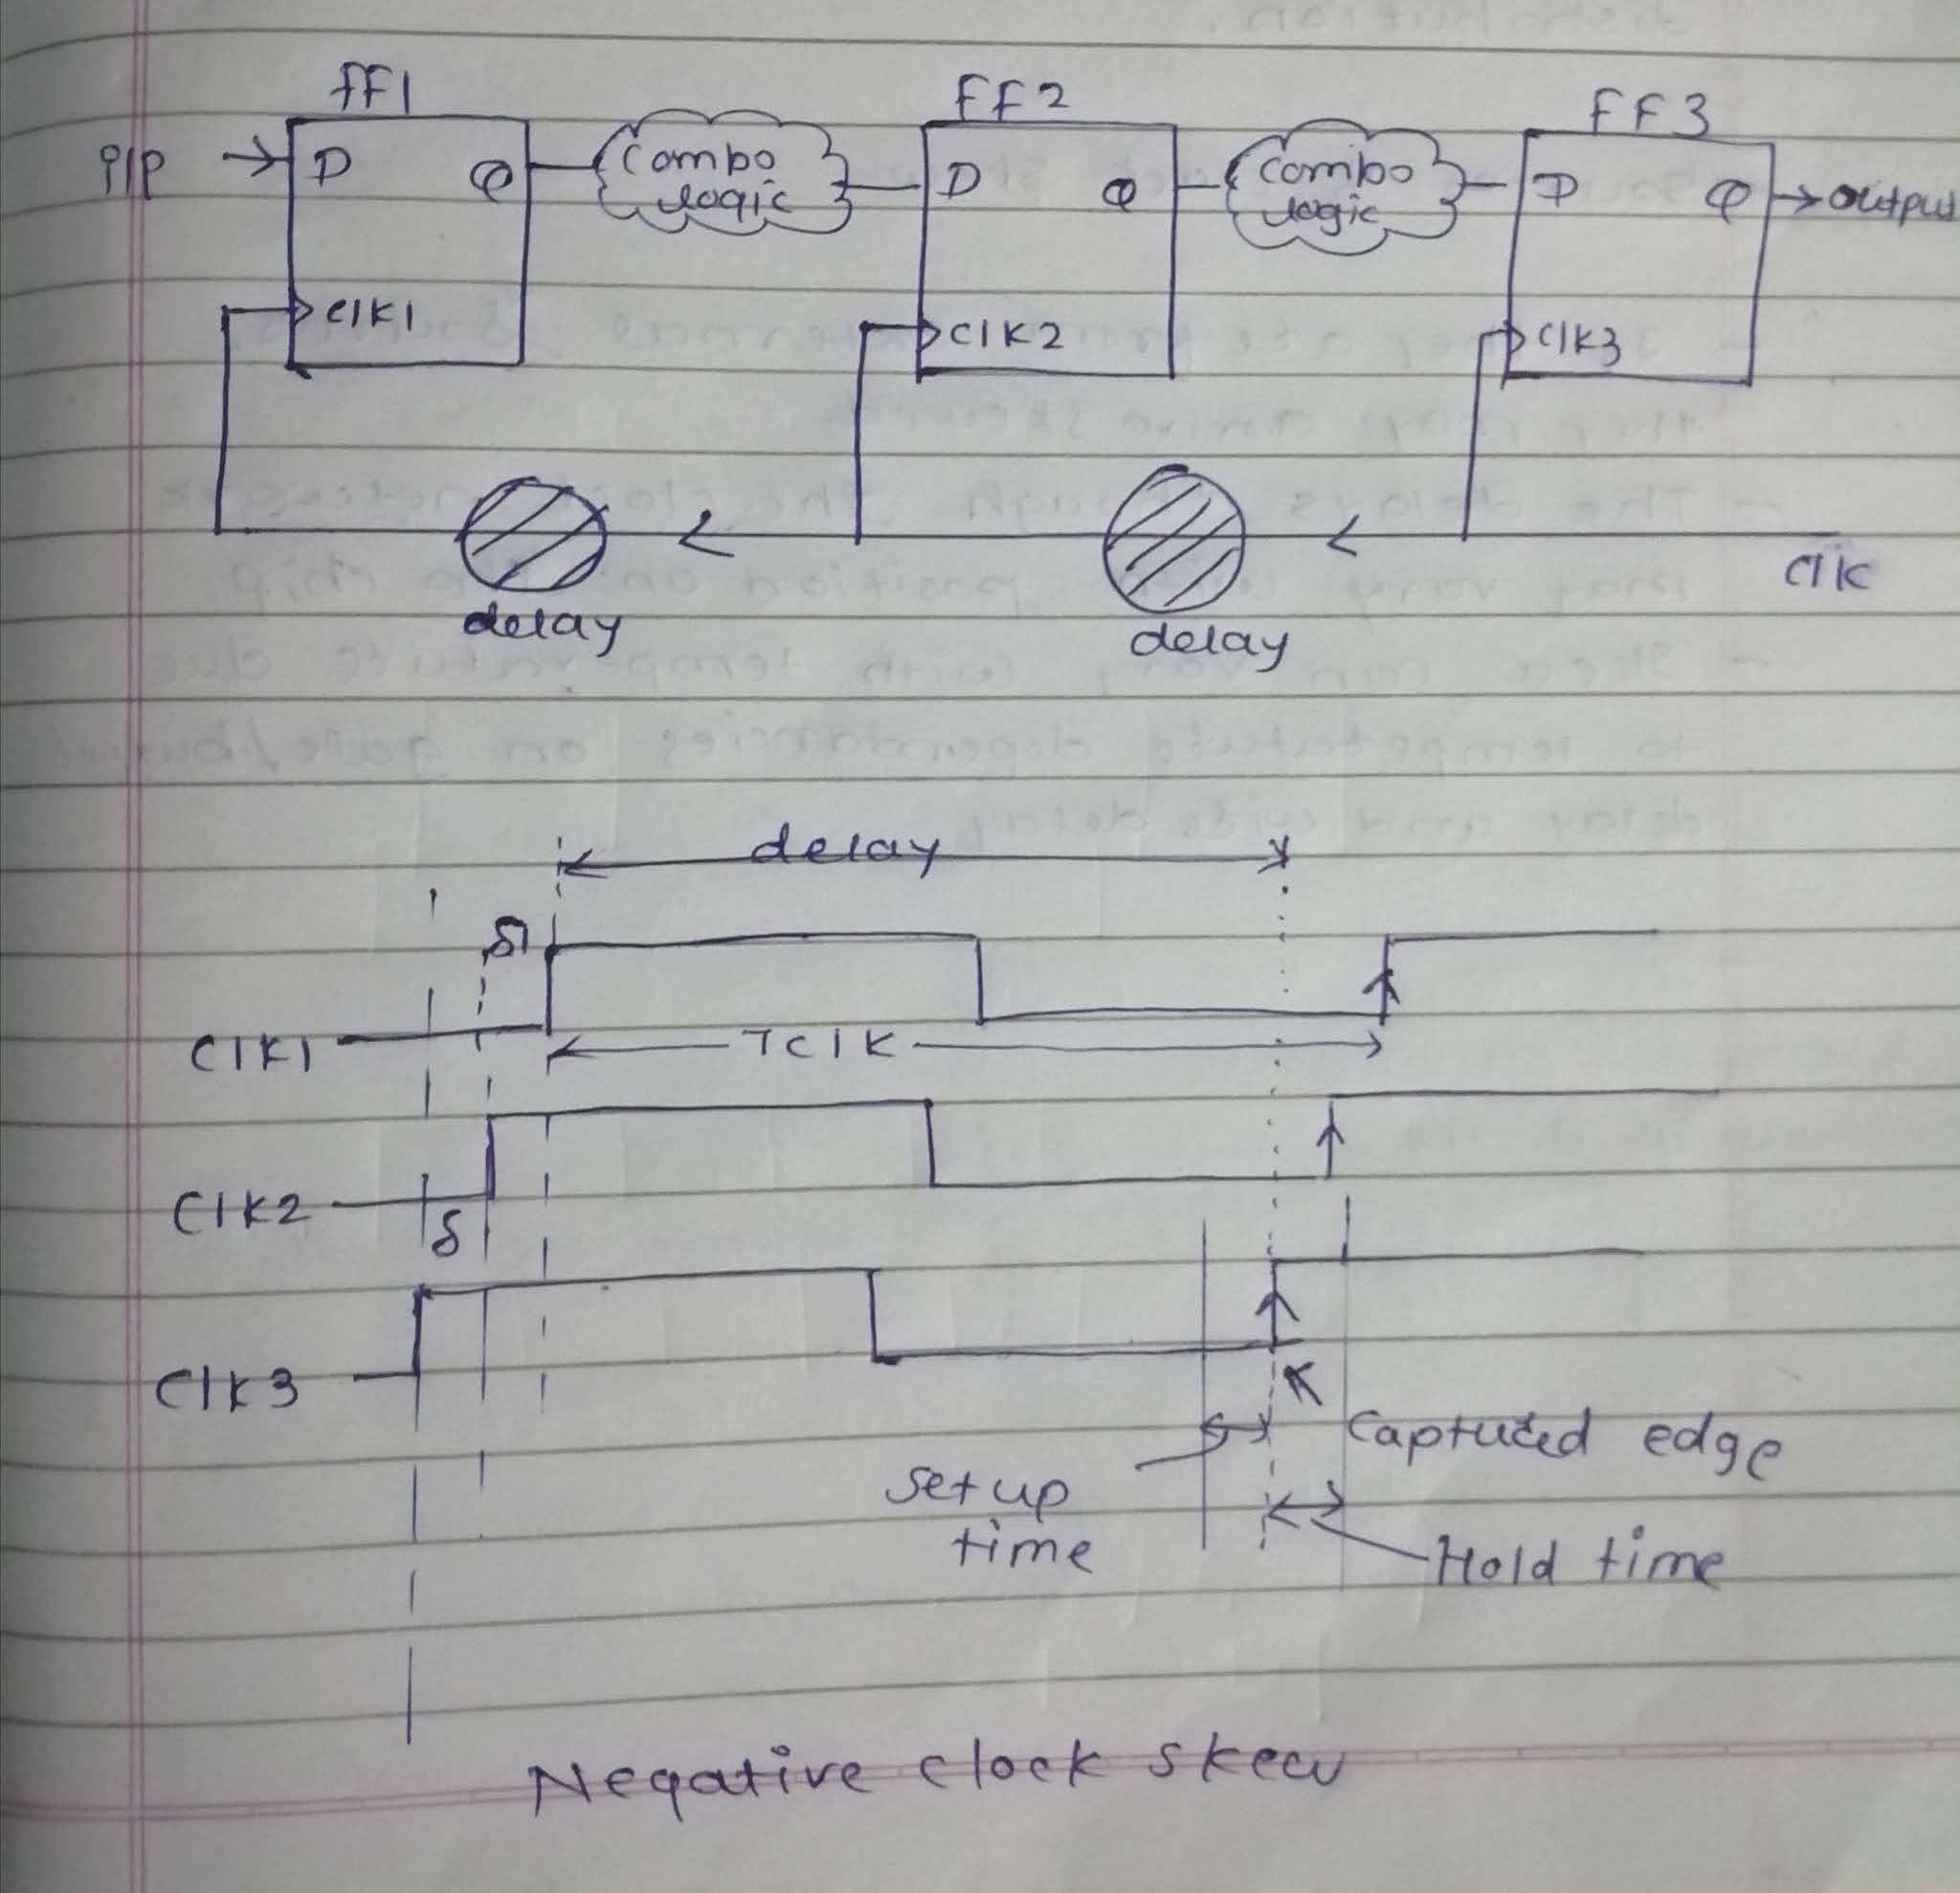 FF1
FF2
FF3
i/p D Q Combo logic D Q Combo logic D Q output
Clk1
Clk2
Clk3
Clk
delay
delay
delay
δ1
Clk1
Tclk
Clk2
δ
Clk3
Captured edge
Setup time
Hold time
Negative clock skew